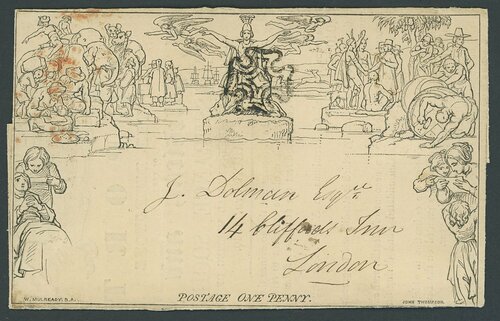 J. Dolman Esqre
14 Cliffords Inn
London
W. MULREADY. R.A.
POSTAGE ONE PENNY.
JOHN THOMPSON.